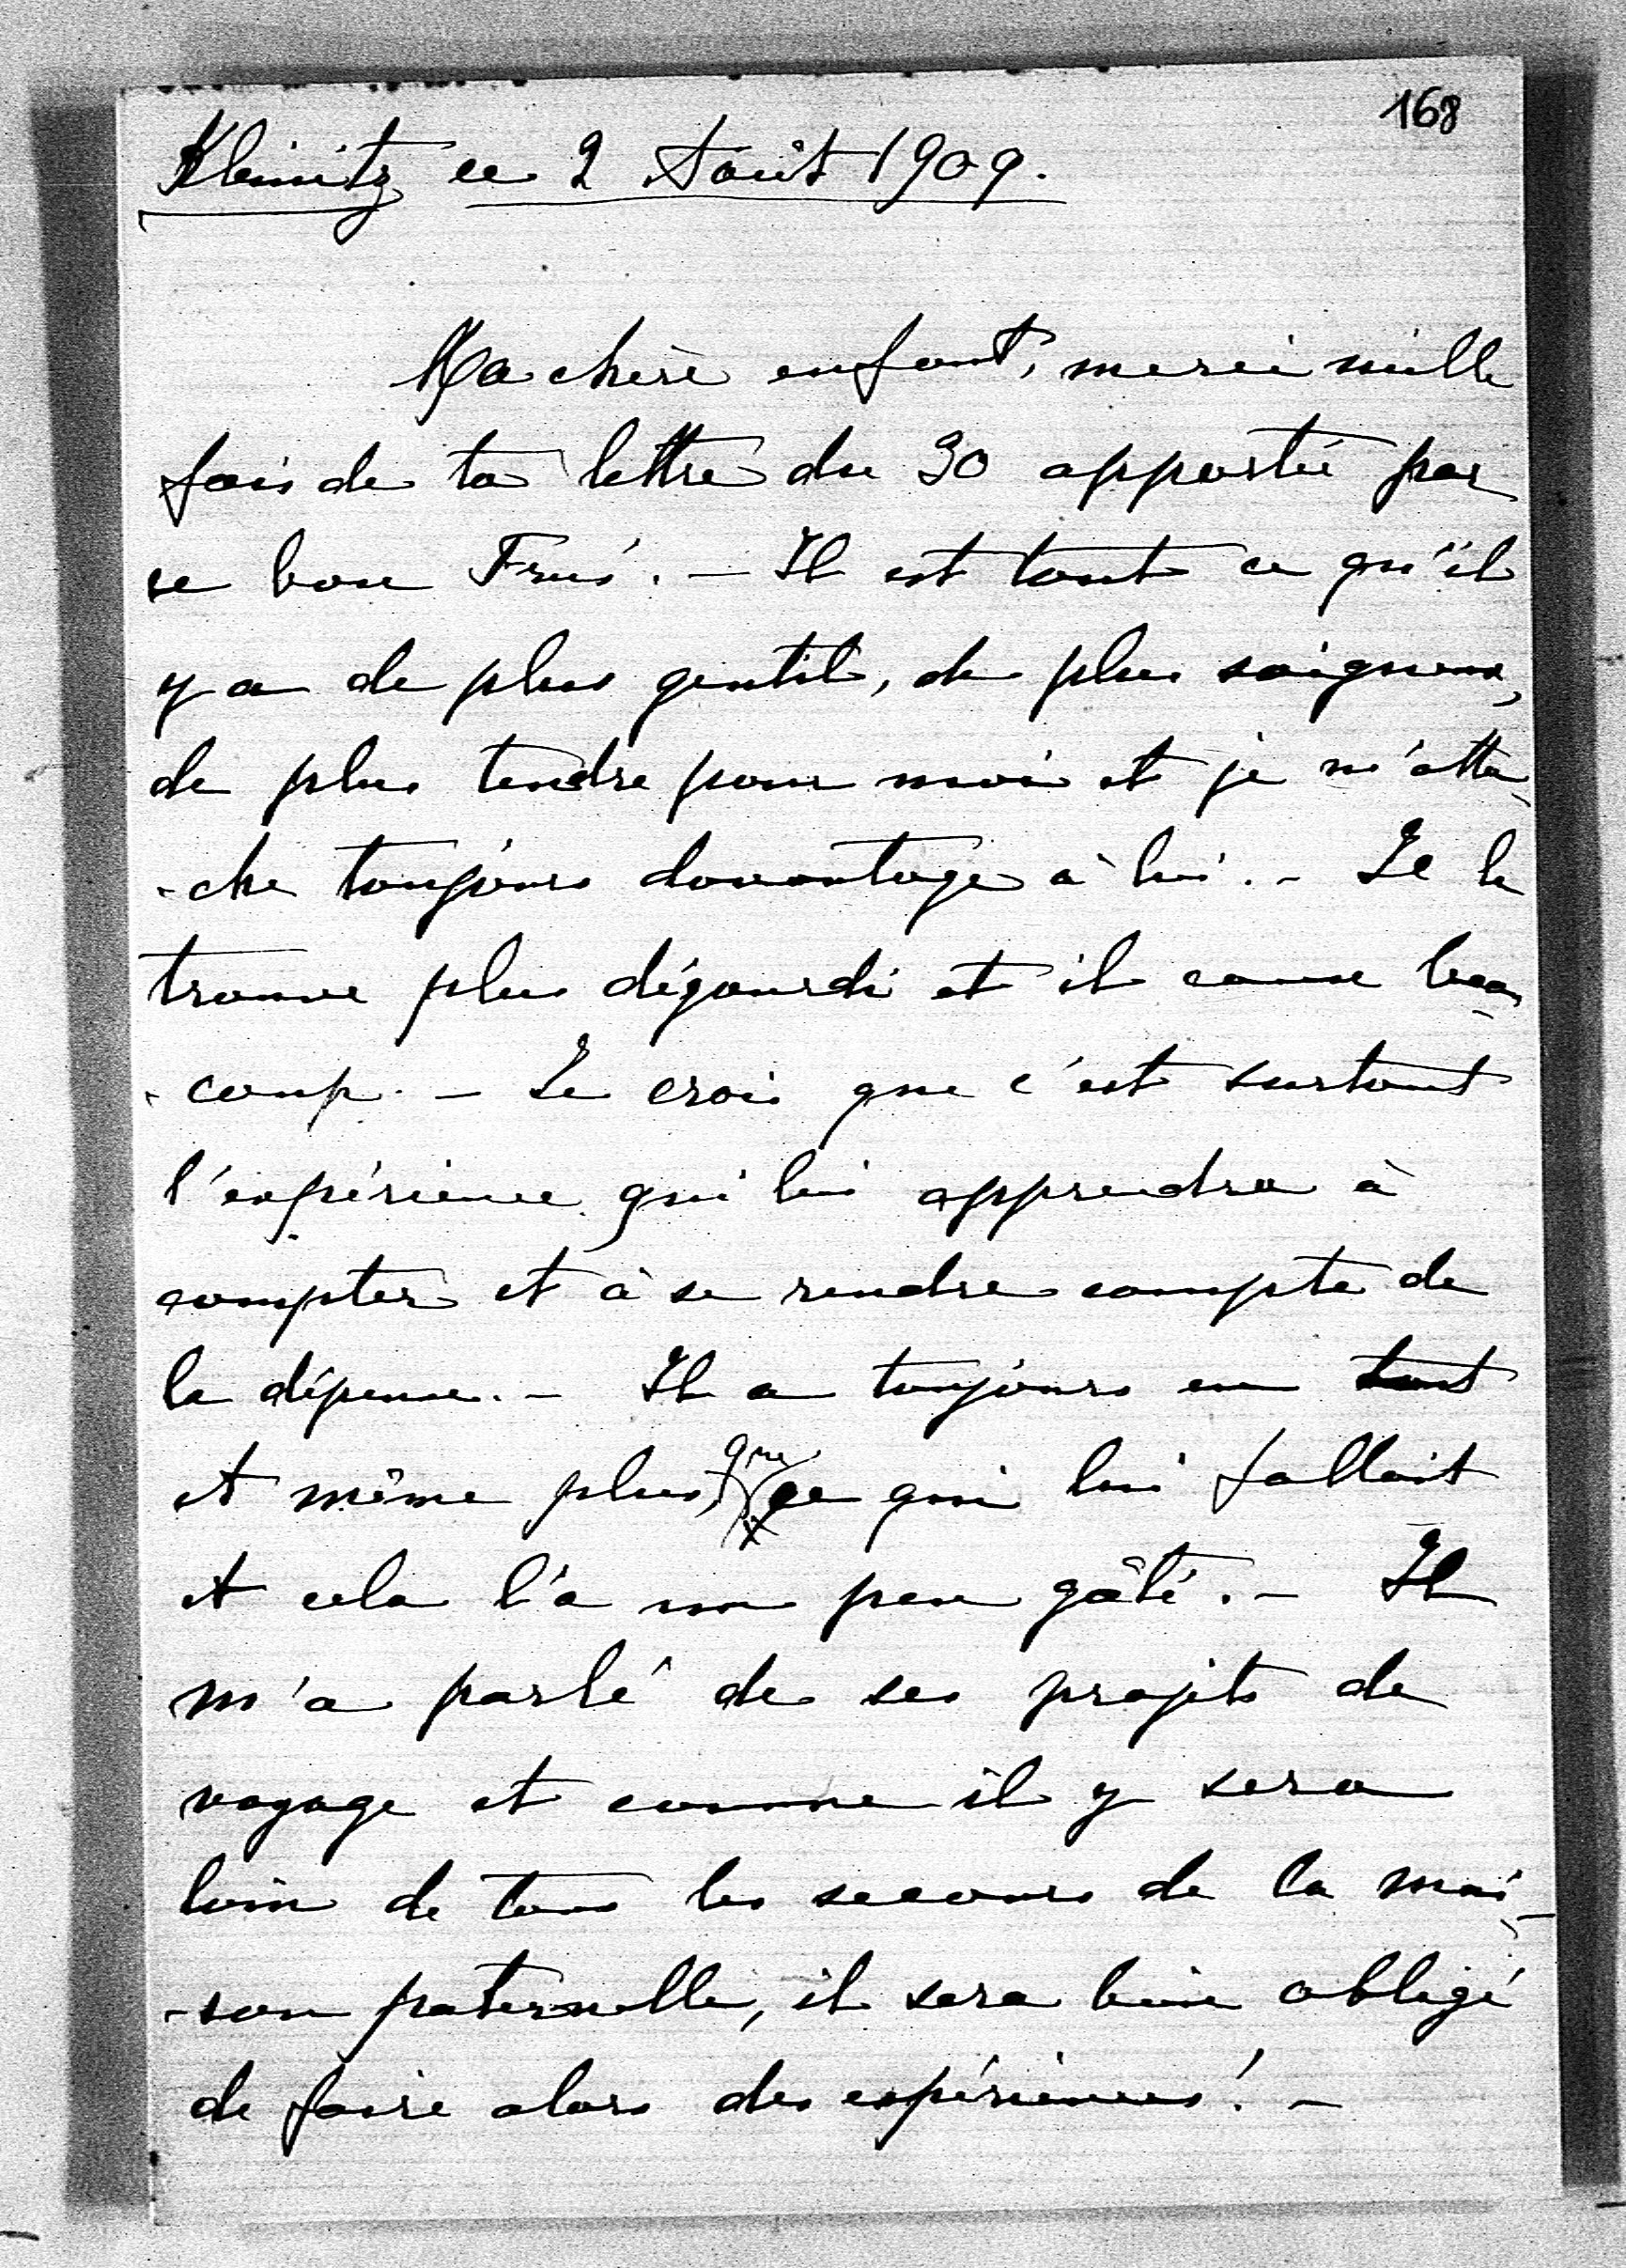 168
Kleinitz ce 2 Août 1909.
Ma chère enfant, merci mille
fois de ta lettre du 30 apportée par
ce bon Fris. – Il est tout ce qu'il
y a de plus gentil, de plus soigneux,
de plus tendre pour moi et je m'atta-
-che toujours davantage à lui. – Je le
trouve plus dégourdi et il cause beau-
-coup. – Je crois que c'est surtout
l'expérience qui lui apprendra à
compter et à se rendre compte de
la dépense. – Il a toujours eu tout
et même plus que ce qui lui fallait
et cela l'a un peu gâté. – Il
m'a parlé de ses projets de
voyage et comme il y sera
loin de tous les secours de la mai-
-son paternelle, il sera bien obligé
de faire alors des expériences! –